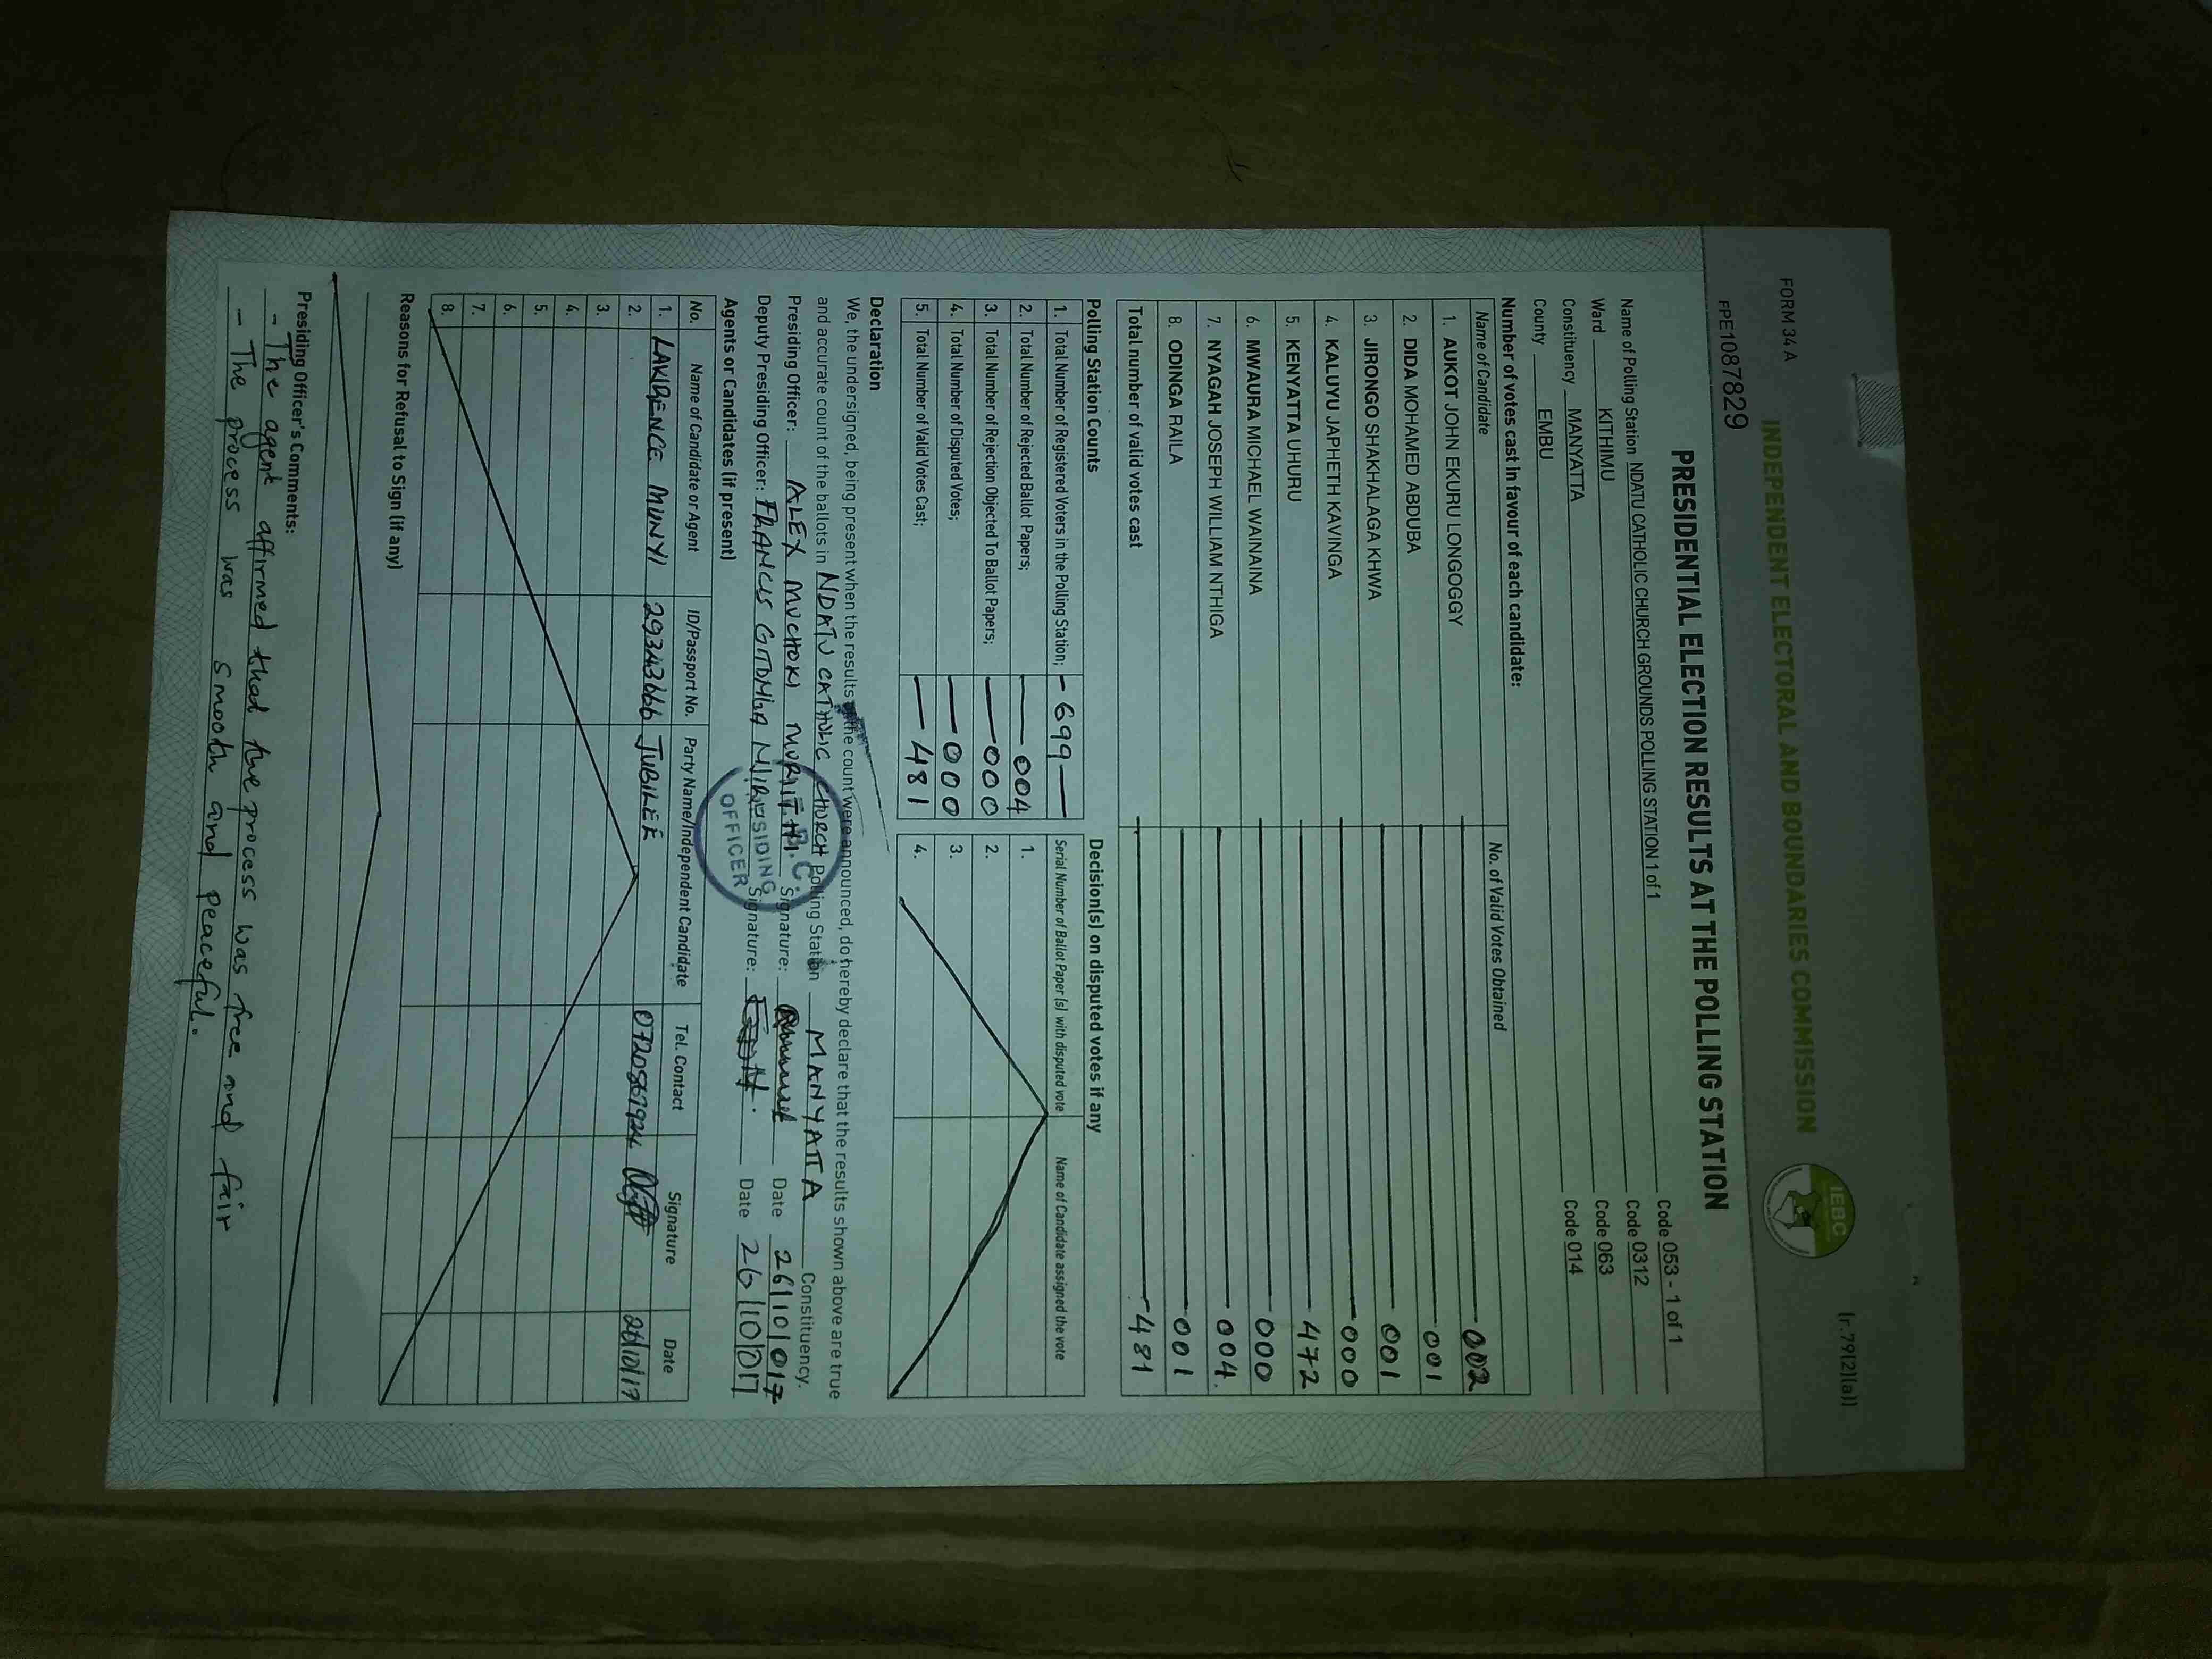 FORM 34 A
(r.79(2)(a))
INDEPENDENT ELECTORAL AND BOUNDARIES COMMISSION
IEBC
PE1087829
PRESIDENTIAL ELECTION RESULTS AT THE POLLING STATION
Name of Polling Station NDATU CATHOLIC CHURCH GROUNDS POLLING STATION 1 of 1 Code 053 - 1 of 1
Ward KITHIMU Code 0312
Constituency MANYATTA Code 063
County EMBU Code 014
Number of votes cast in favour of each candidate:
Name of Candidate No. of Valid Votes Obtained
1. AUKOT JOHN EKURU LONGOGGY 002
2. DIDA MOHAMED ABDUBA 001
3. JIRONGO SHAKHALAGA KHWA 001
4. KALUYU JAPHETH KAVINGA 000
5. KENYATTA UHURU 472
6. MWAURA MICHAEL WAINAINA 000
7. NYAGAH JOSEPH WILLIAM NTHIGA 004.
8. ODINGA RAILA 001
Total number of valid votes cast 481
Polling Station Counts
1. Total Number of Registered Voters in the Polling Station; - 699 -
2. Total Number of Rejected Ballot Papers; 004
3. Total Number of Rejection Objected To Ballot Papers; 000
4. Total Number of Disputed Votes; 000
5. Total Number of Valid Votes Cast; 481
Decision(s) on disputed votes if any
Serial Number of Ballot Paper (s) with disputed vote Name of Candidate assigned the vote
1.
2.
3.
4.
Declaration
We, the undersigned, being present when the results of the count were announced, do hereby declare that the results shown above are true
and accurate count of the ballots in NDATU CATHOLIC CHURCH Polling Station MANYATTA Constituency.
Presiding Officer: ALEX MUCHOKI MURIITHI Signature: Date 26/10/017
Deputy Presiding Officer: FRANCIS Signature: Date 26/10/017
PRESIDING
OFFICER
Agents or Candidates (if present)
No. Name of Candidate or Agent ID/Passport No. Party Name/Independent Candidate Tel. Contact Signature Date
1. LAWRENCE MUNYI 29343666 JUBILEE 0720561924 26/10/17
2.
3
4.
5.
6.
7.
8.
Reasons for Refusal to Sign (if any)
Presiding Officer's Comments:
- The agent affirmed that the process was free and fair
- The process was smooth and peaceful.